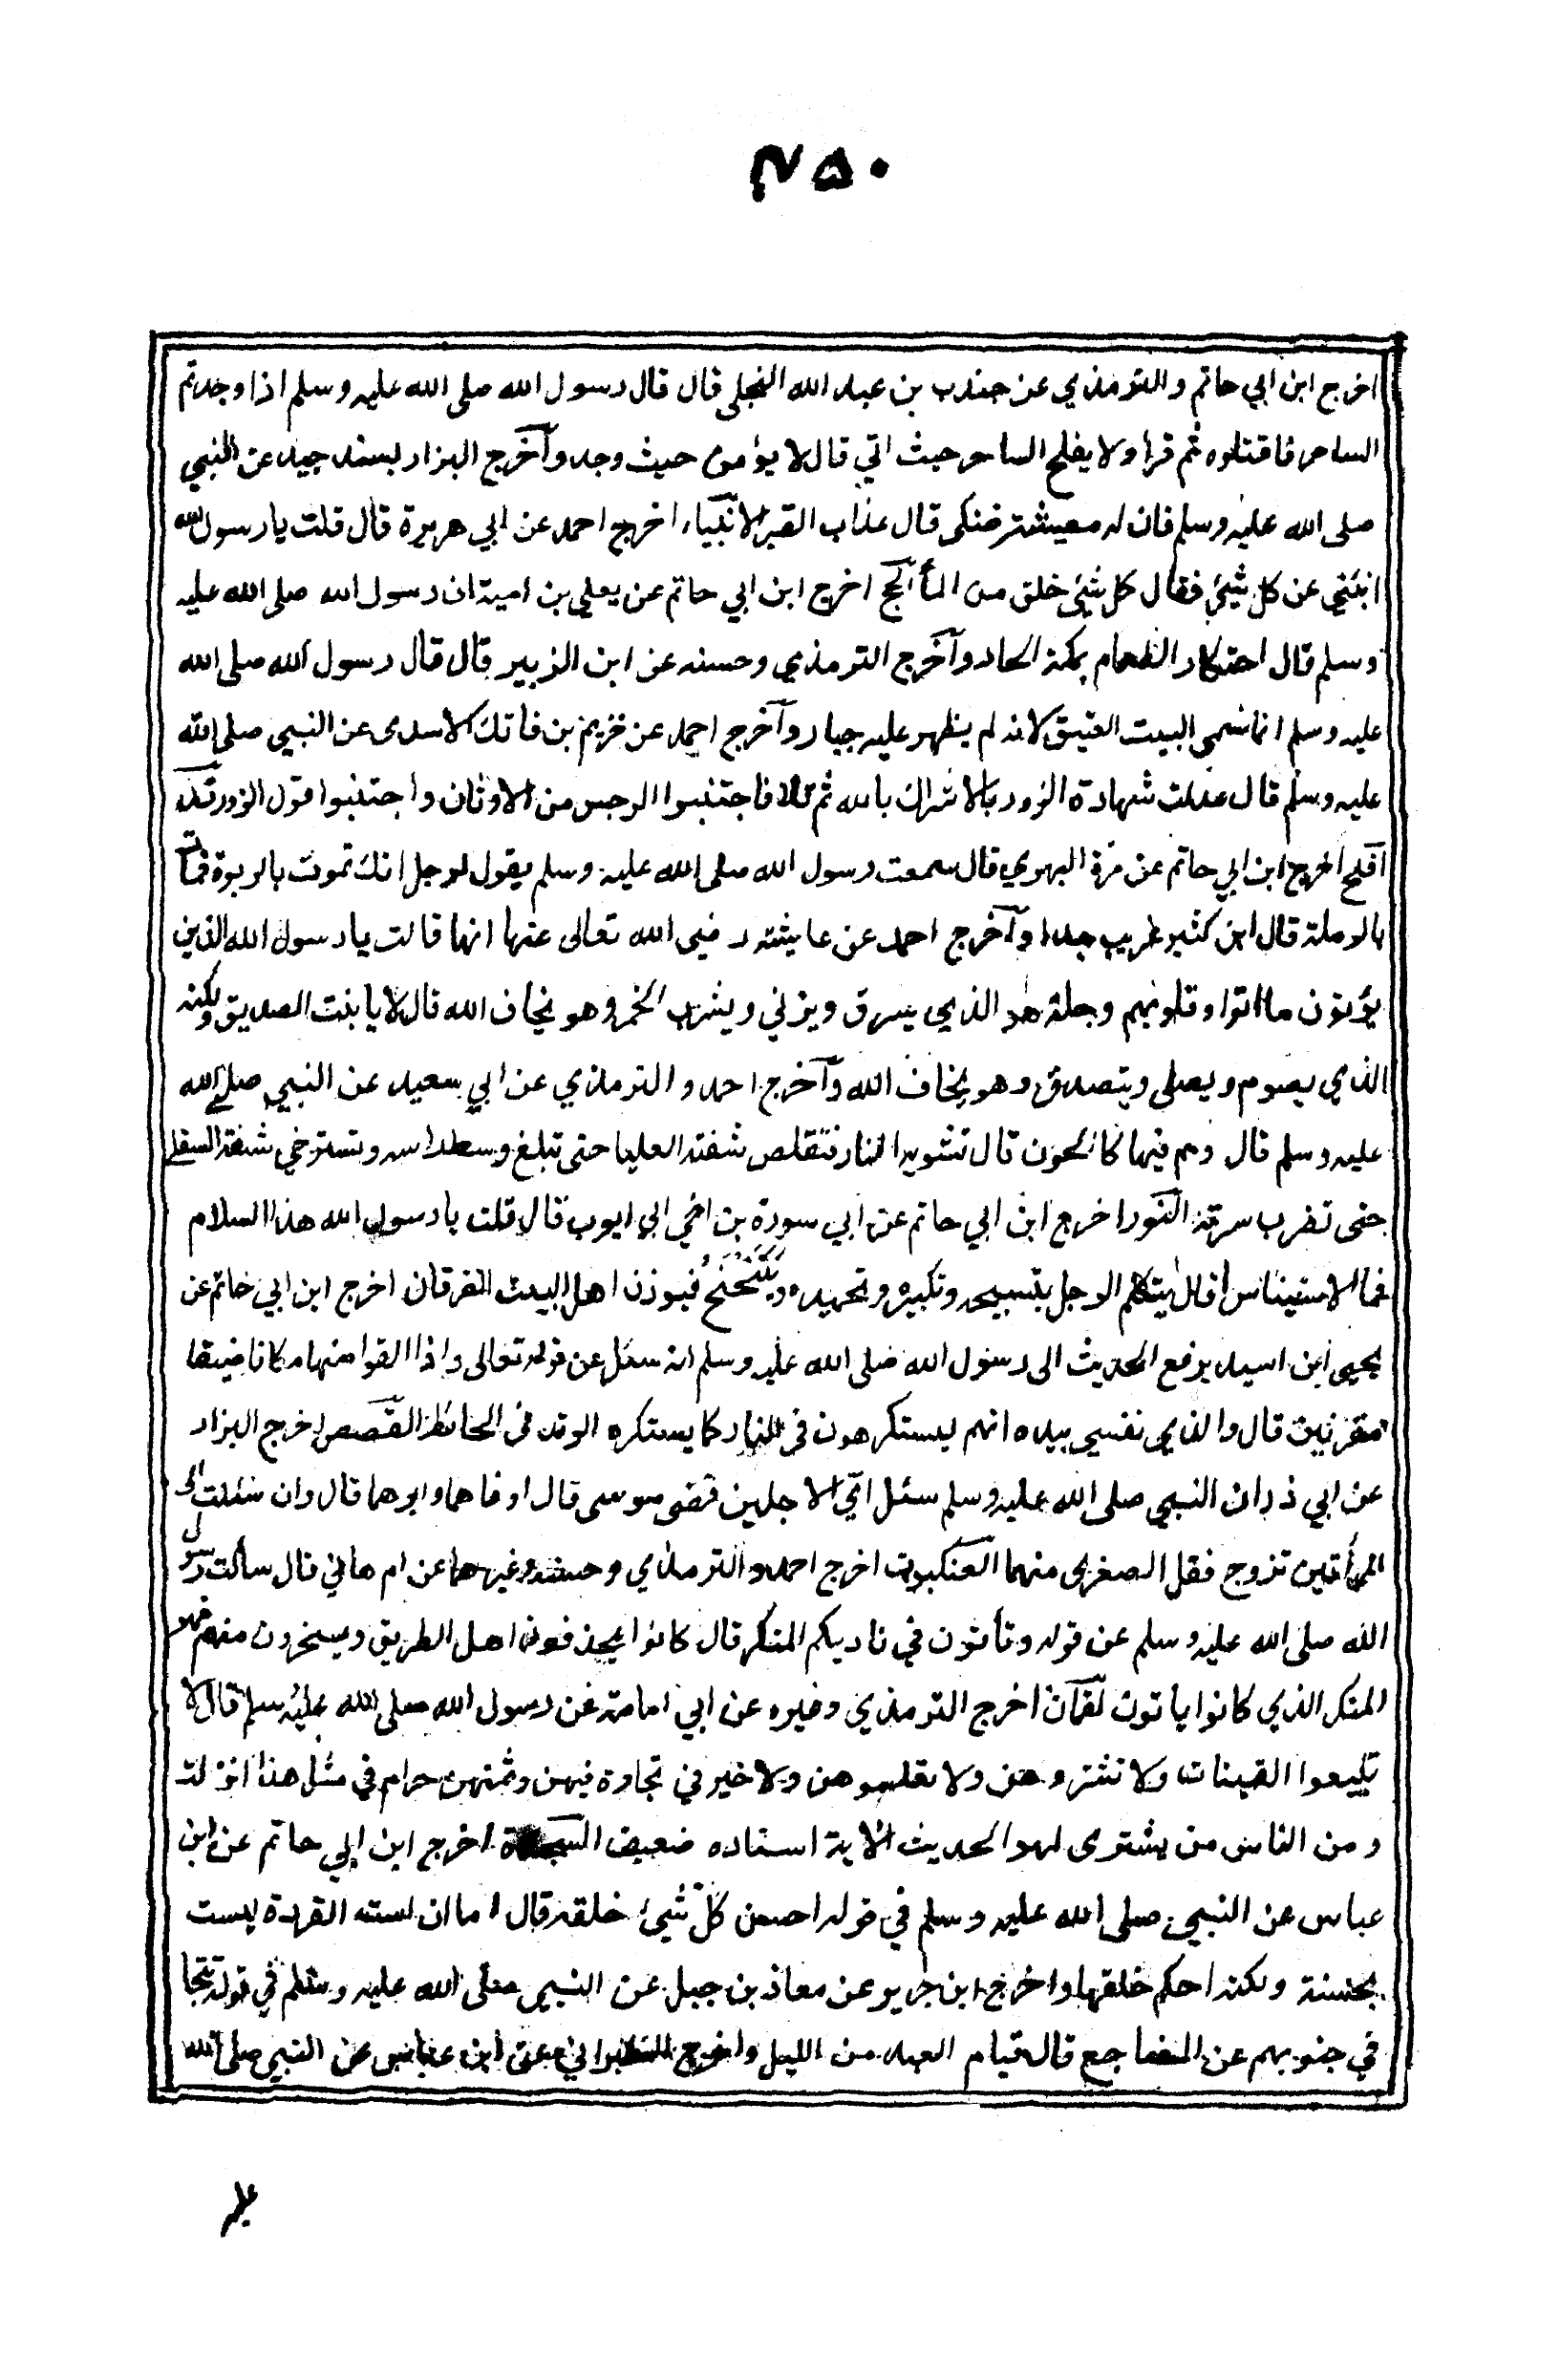 ٣٥٠
اخرج ابن ابي حاتم والترمذي عن جندب بن عبد الله النجلي قال قال رسول الله صلى الله عليه وسلم اذا وجدتم
الساحر فاقتلوه ثم قرا ولا يفلح الساحر حيث اتي قال لا يؤمن حيث وجد وآخرج البزار بسند جيد عن النبي
صلى الله عليه وسلم فان له معيشة ضنكى قال عذاب القبر الانبياء اخرج احمد عن ابي هريرة قال قلت يا رسول الله
انبئني عن كل شيئ فقال كل شئ خلق من المأ الحج اخرج ابن ابي حاتم عن يعلي بن امية ان رسول الله صلى الله عليه
وسلم قال احتكار الطعام بمكة الحاد وآخرج الترمذي وحسنه عن ابن الزبير قال قال رسول الله صلى الله
عليه وسلم انما سمي البيت العتيق لانه لم يظهر عليه جبار وآخرج احمد عن خزيم بن فاتك الاسدى عن النبي صلى الله
عليه وسلم قال عدلت شهادة الزور بالاشراك بالله ثم تلا فاجتنبوا الرجس من الاوثان واجتنبوا قول الزور قد
آفلح اخرج ابن ابي حاتم عن مرة البهزي قال سمعت رسول الله صلى الله عليه وسلم يقول لرجل انك تموت بالربوة فمات
بالرملة قال ابن كثير غريب جدا وآخرج احمد عن عايشه رضي الله تعالى عنها انها قالت يا رسول الله الذين
يؤتون ما اتوا وقلوبهم وجلة هو الذي يسرق ويزني ويشرب الخمر وهو يخاف الله قال لا يا بنت الصديق ولكنه
الذي يصوم ويصلي ويتصدق وهو يخاف الله وآخرج احمد والترمذي عن ابي سعيد عن النبي صلى الله
عليه وسلم قال وهم فيها كالحون قال تشويه النار فتقلص شفته العليا حتى تبلغ وسط راسه وتسترخي شفته السفلى
حتى تضرب سرته النور اخرج ابن ابي حاتم عن ابي سورة بن اخي ابي ايوب قال قلت يا رسول الله هذا السلام
فما الاستيناس قال يتكلم الرجل بتسبيحه وتكبيره وتحميده ويتنحنح فيوذن اهل البيت الفرقان اخرج ابن ابي حاتم عن
يحيى ابن اسيد يرفع الحديث الى رسول الله صلى الله عليه وسلم انه سئل عن قوله تعالى واذا القوا منها مكانا ضيقا
مقرنين قال والذي نفسي بيده انهم ليستكرهون في النار كما يستكره الوتد في الحائط القصص اخرج البزار
عن ابي ذر ان النبي صلى الله عليه وسلم سئل ايّ الاجلين قضى موسى قال اوفاهما وابرهما قال وان سئلت اى
المرأتين تزوج فقل الصغرى منهما العنكبوت اخرج احمد والترمذي وحسنه وغيرهما عن ام هاني قال سألت رسول
الله صلى الله عليه وسلم عن قوله وتأتون في ناديكم المنكر قال كانوا يحذفون اهل الطريق ويسخرون منهم فهو
المنكر الذي كانوا ياتون لقمان اخرج الترمذي وغيره عن ابي امامة عن رسول الله صلى الله عليه سلم قال لا
تبيعوا القينات ولا تشتروهن ولا تعلموهن ولا خير في تجارة فيهن وثمنهن حرام في مثل هذا انزلت
ومن الناس من يشترى لهو الحديث الاية اسناده ضعيف السجدة اخرج ابن ابي حاتم عن ابن
عباس عن النبي صلى الله عليه وسلم في قوله احسن كلّ شيئ خلقه قال اما ان استه القردة ليست
بحسنة ولكنه احكم خلقها واخرج ابن جرير عن معاذ بن جبل عن النبي صلى الله عليه وسلم في قوله تتجا
في جنوبهم عن المضاجع قال قيام العبد من الليل واخرج الطبراني عن ابن عباس عن النبي صلى الله
عليه